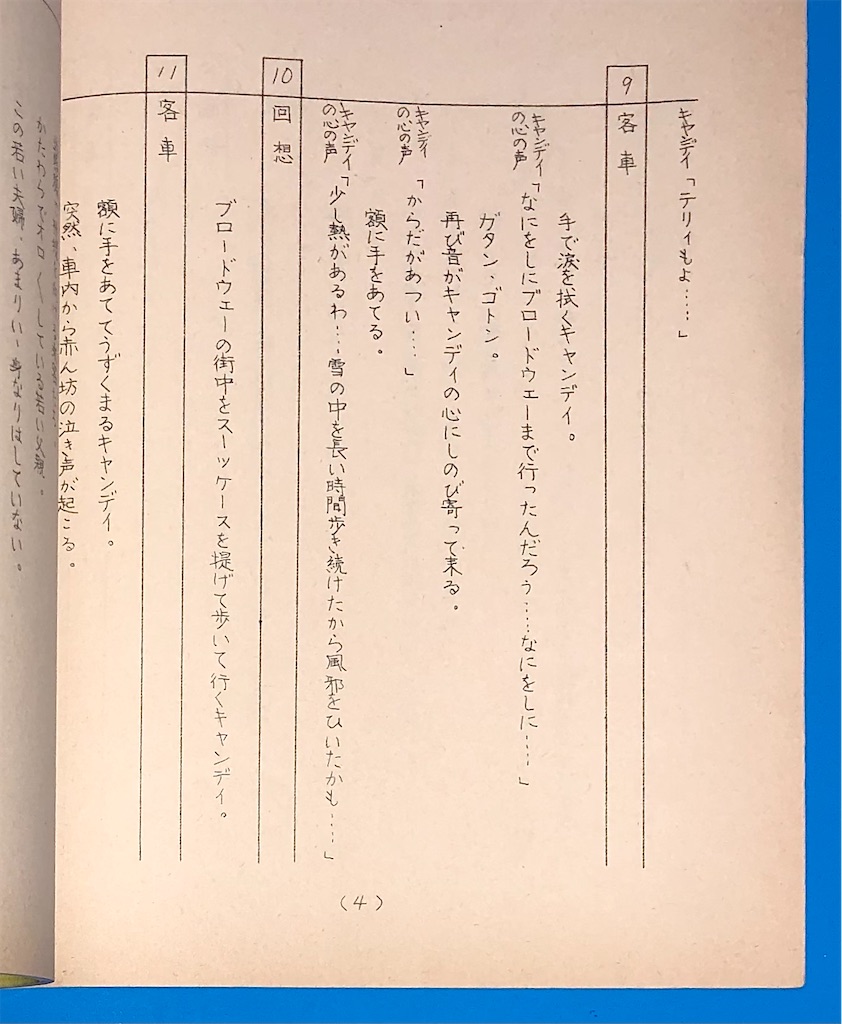 キャンディ「テリィもよ……」
9 客車
手で涙を拭くキャンディ。
キャンディの心の声「なにをしにブロードウエーまで行ったんだろう……なにをしに……」
ガタン、ゴトン。
再び音がキャンディの心にしのび寄って来る。
キャンディの心の声「からだがあつい……」
額に手をあてる。
キャンディの心の声「少し熱があるわ……雪の中を長い時間歩き続けたから風邪をひいたかも……」
10 回想
ブロードウェーの街中をスーツケースを提げて歩いて行くキャンディ。
11 客車
額に手をあててうずくまるキャンディ。
突然、車内から赤ん坊の泣き声が起こる。
(4)
かたわらでオロ〱している若い父親。
この若い夫婦、あまりいゝ身なりはしていない。